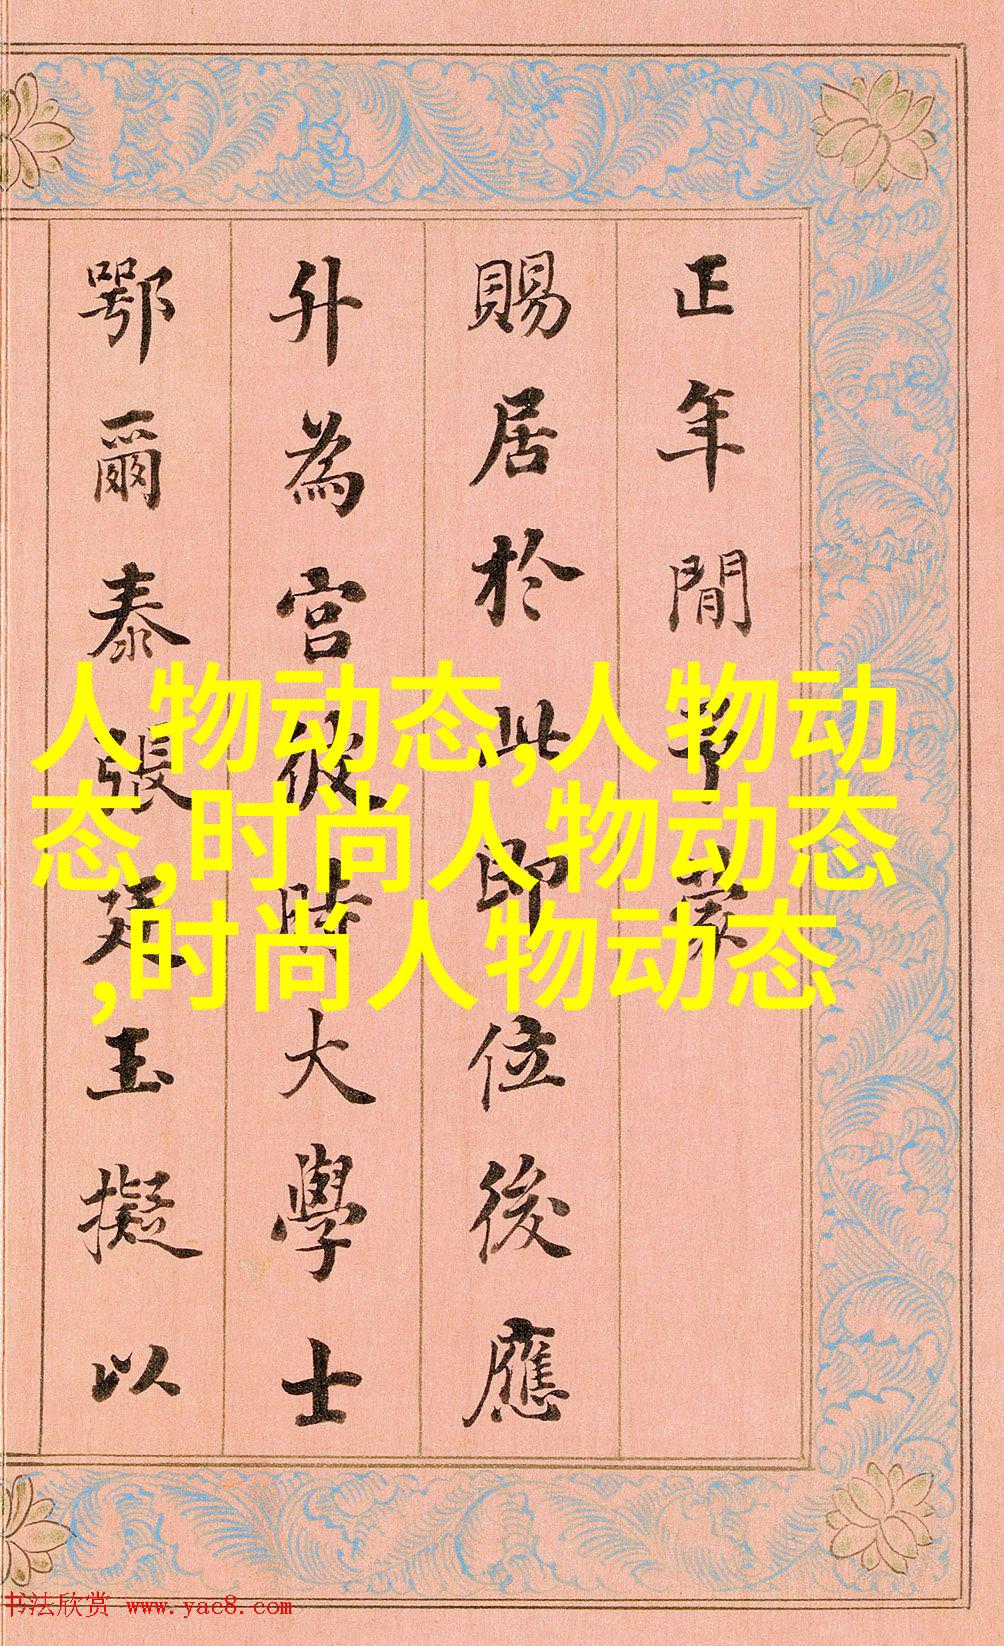 正年間予蒙
賜居於此即位後應
升為宮彼時大學士
鄂爾泰張廷玉擬以
人物动态,人物动
态,时尚人物动态
,时尚人物动态
书法欣赏 www.yac8.com